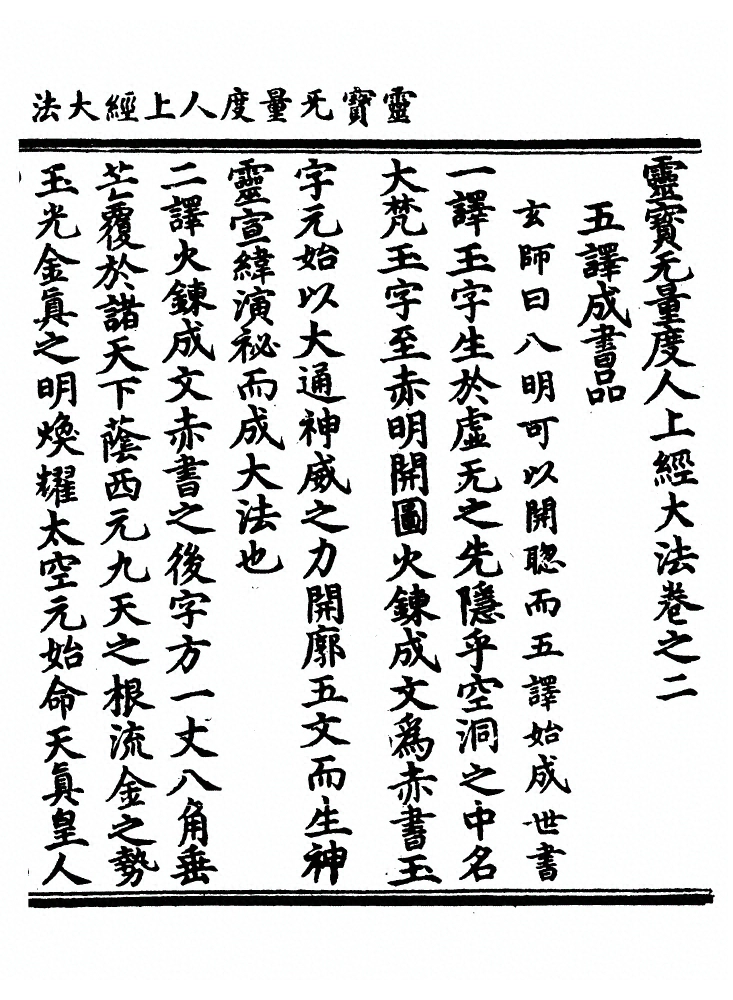 靈寳无量度人上經大法
靈寳无量度人上經大法卷之二
五譯成書品
玄師曰八明可以開聦而五譯始成世書
一譯玉字生於虛无之先隱乎空洞之中名
大梵玉字至赤明開圖火鍊成文爲赤書玉
字元始以大通神威之力開廓五文而生神
靈宣緯演祕而成大法也
二譯火鍊成文赤書之後字方一丈八角垂
芒覆於諸天下蔭西元九天之根流金之勢
玉光金眞之明煥耀太空元始命天眞皇人